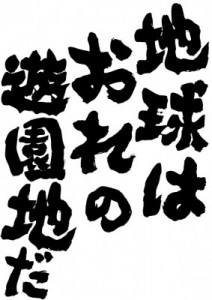 地球は
おれの
遊園地だ